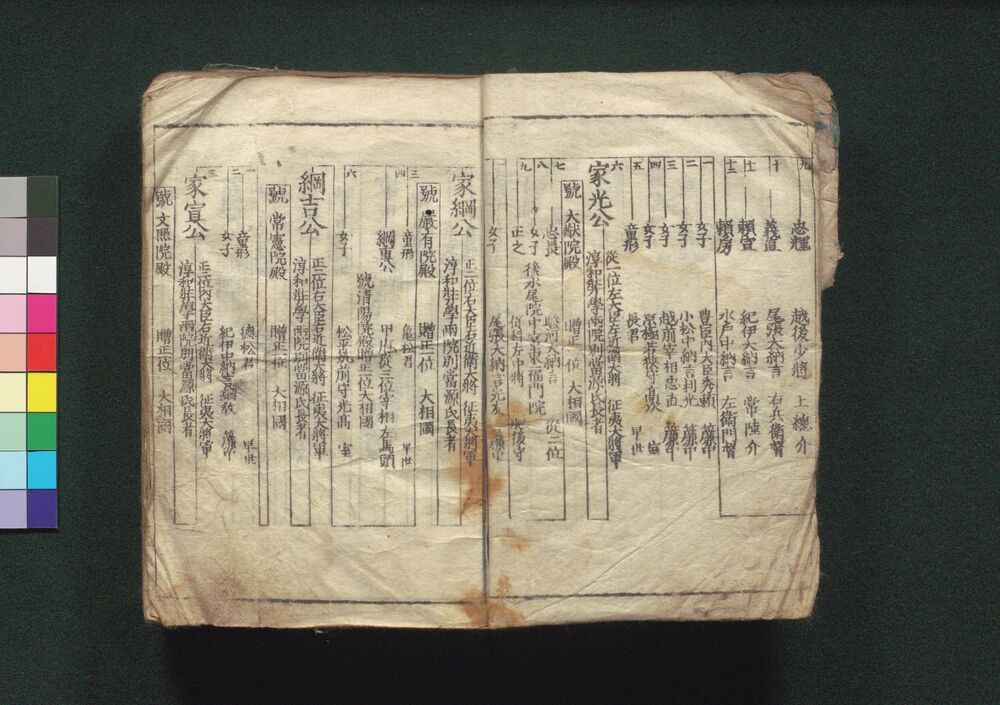 九 忠輝 越後少将 上總介
十 義直 尾張大納言 右兵衛督
十一 頼宣 紀伊大納言 常陸介
十二 頼房 水戸中納言 左衛門督
一 女子 豊臣内大臣秀頼 簾中
二 女子 小松中納言利光 簾中
三 女子 越前宰相忠直 簾中
四 女子 京極若狭守 室
五 童形 長君 早世
六 家光公 従一位左大臣左近衛大将 征夷大将軍
淳和奘學兩院別當源氏長者
號 大猷院殿 贈正一位 大相國
七 忠長 駿河大納言 従二位
八 女子 後水尾院中宮東福門院
九 正之 従四位左中将 肥後守
一 女子 尾張大納言光友 簾中
家綱公 正二位右大臣右近衛大将 征夷大将軍
淳和奘學兩院別當源氏長者
號 嚴有院殿 贈正一位 大相國
三 童形 亀松君 早世
四 綱重公 甲府従三位宰相左馬頭
號清陽院殿贈正位大相國
六 女子 松平筑前守光高 室
綱吉公 正二位右大臣右近衛大将 征夷大将軍
淳和奘學兩院別當源氏長者
號 常憲院殿 贈正一位 大相國
一 童形 徳松君 早世
二 女子 紀伊中納言綱教 簾中
三 家宣公 正二位内大臣右近衛大将 征夷大将軍
淳和奘學兩院別當源氏長者
號 文照院殿 贈正一位 大相國